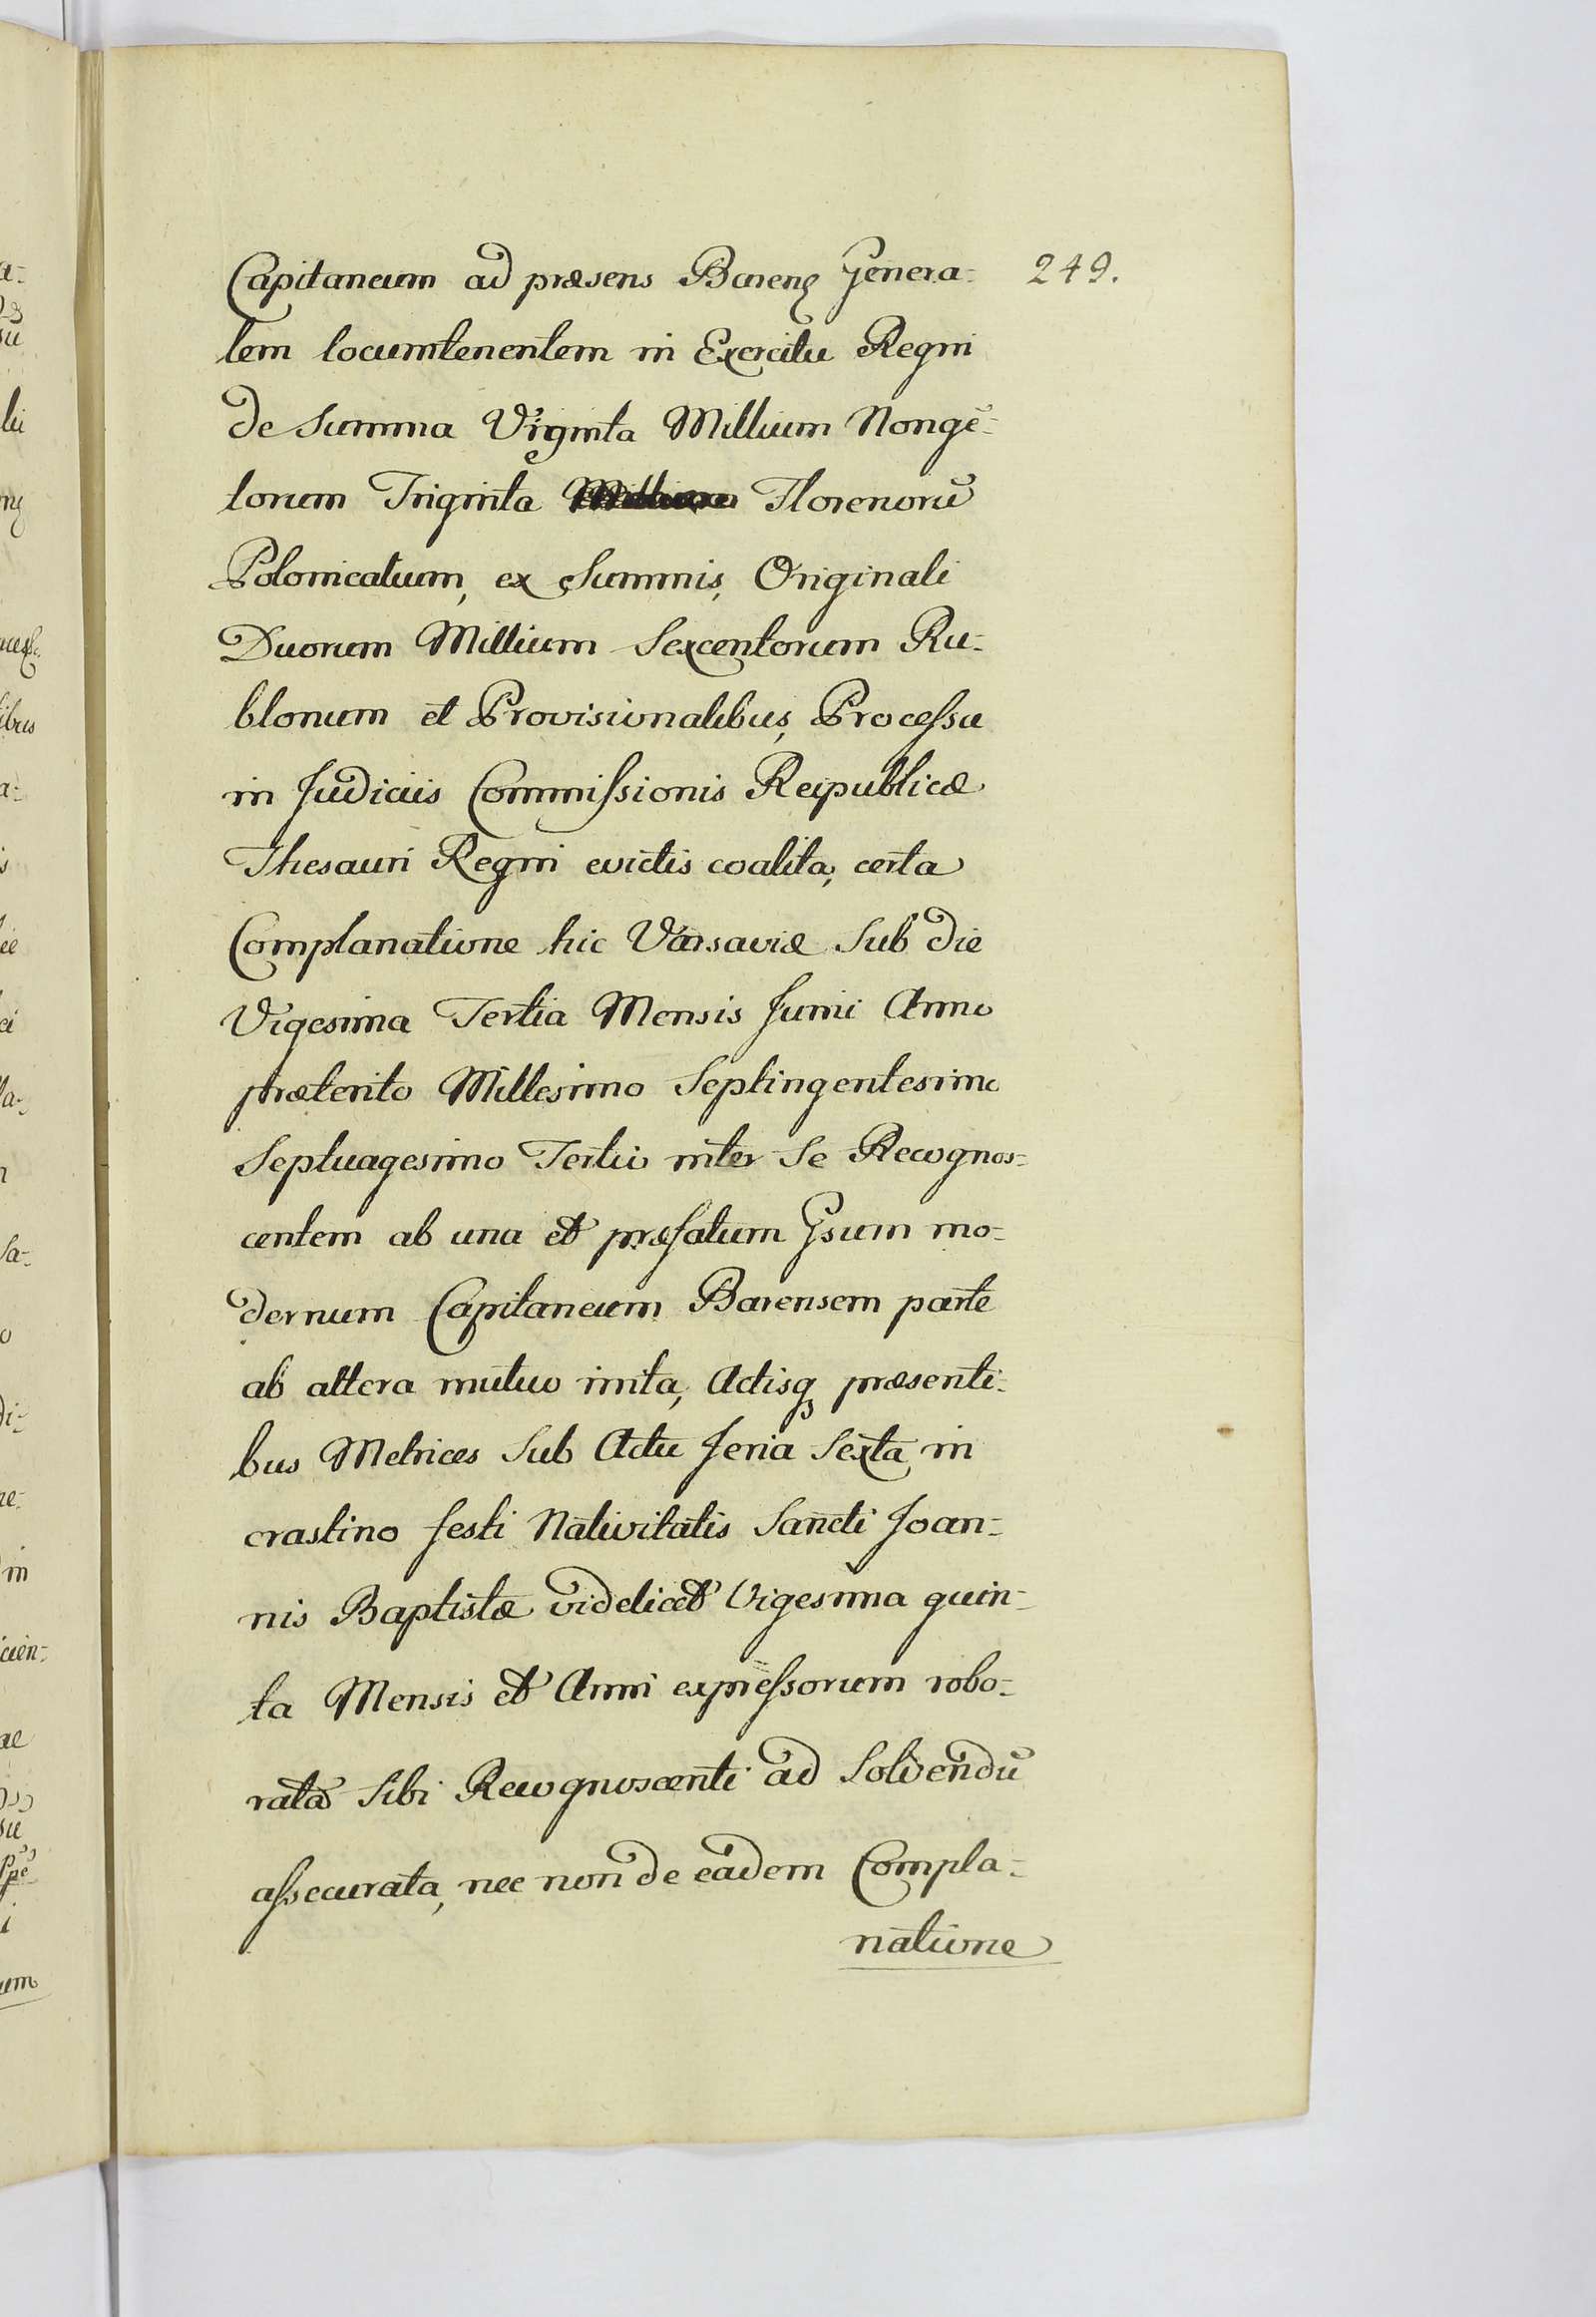 Capitaneum ad præsens Barenȩ Genera- 249.
lem locumtenentem in Exercitu Regni
de Summa Viginta Millium Nongē-
torum Triginta Florenorū
Polonicatum, ex Summis, Originali
Duorum Millium Sexcentorum Ru-
blonum et Provisionalibus, Processu
in Judiciis Commissionis Reipublicæ
Thesauri Regni evictis coalita, certa
Complanatione hic Varsaviæ Sub die
Vigesima Tertia Mensis Junii Anno
præterito Millesimo Septingentesimo
Septuagesimo Tertio inter Se Recognos-
centem ab una et præfatum Gsum mo-
dernum Capitaneum Barensem parte
ab altera mutuo inita, Actisq præsenti-
bus Metrices Sub Actu feria Sexta in
crastino festi Nativitatis Sancti Joan-
nis Baptistæ videlicet Vigesima quin-
ta Mensis et Anni expressorum robo-
rata Sibi Recognoscenti ad Solvendū
assecurata, nec non de eadem Compla-
natione